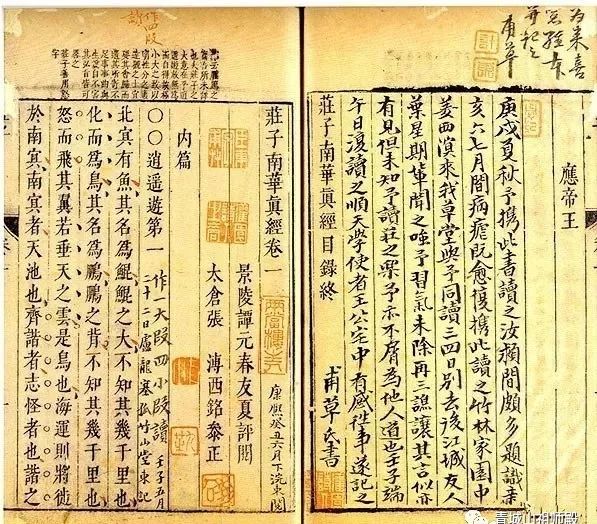 为来喜
并記之
甫草
應帝王
庚戌夏秋予攜此書讀之汝潁間頗多題識辛
亥六七月間病瘧既愈復攜此讀之竹林家園中
姜西溟來我草堂與予同讀三四日別去後江城友人
葉星期聞之唯予習氣未除再三譙讓其言似亦
有見但未知予讀莊之樂予亦不屑為他人道也壬子端
午日復讀之順天學使者王公宅中有感往事遂記之
甫草氏書
莊子南華眞經目錄終
莊子南華眞經卷一
景陵譚元春友夏評閱
太倉張溥西銘叅正
康熙癸丑六月下浣東閣
內篇
〇〇逍遥遊第一
作一大段四小段讀壬子五月
二十二日盧龍塞孤竹山堂東記
北㝠有魚其名爲鯤鯤之大不知其幾千里也
化而爲鳥其名爲鵬鵬之背不知其幾千里也
怒而飛其翼若垂天之雲是鳥也海運則將徙
於南㝠南㝠者天池也齊諧者志怪者也諧之
作四段
青城山祖师殿